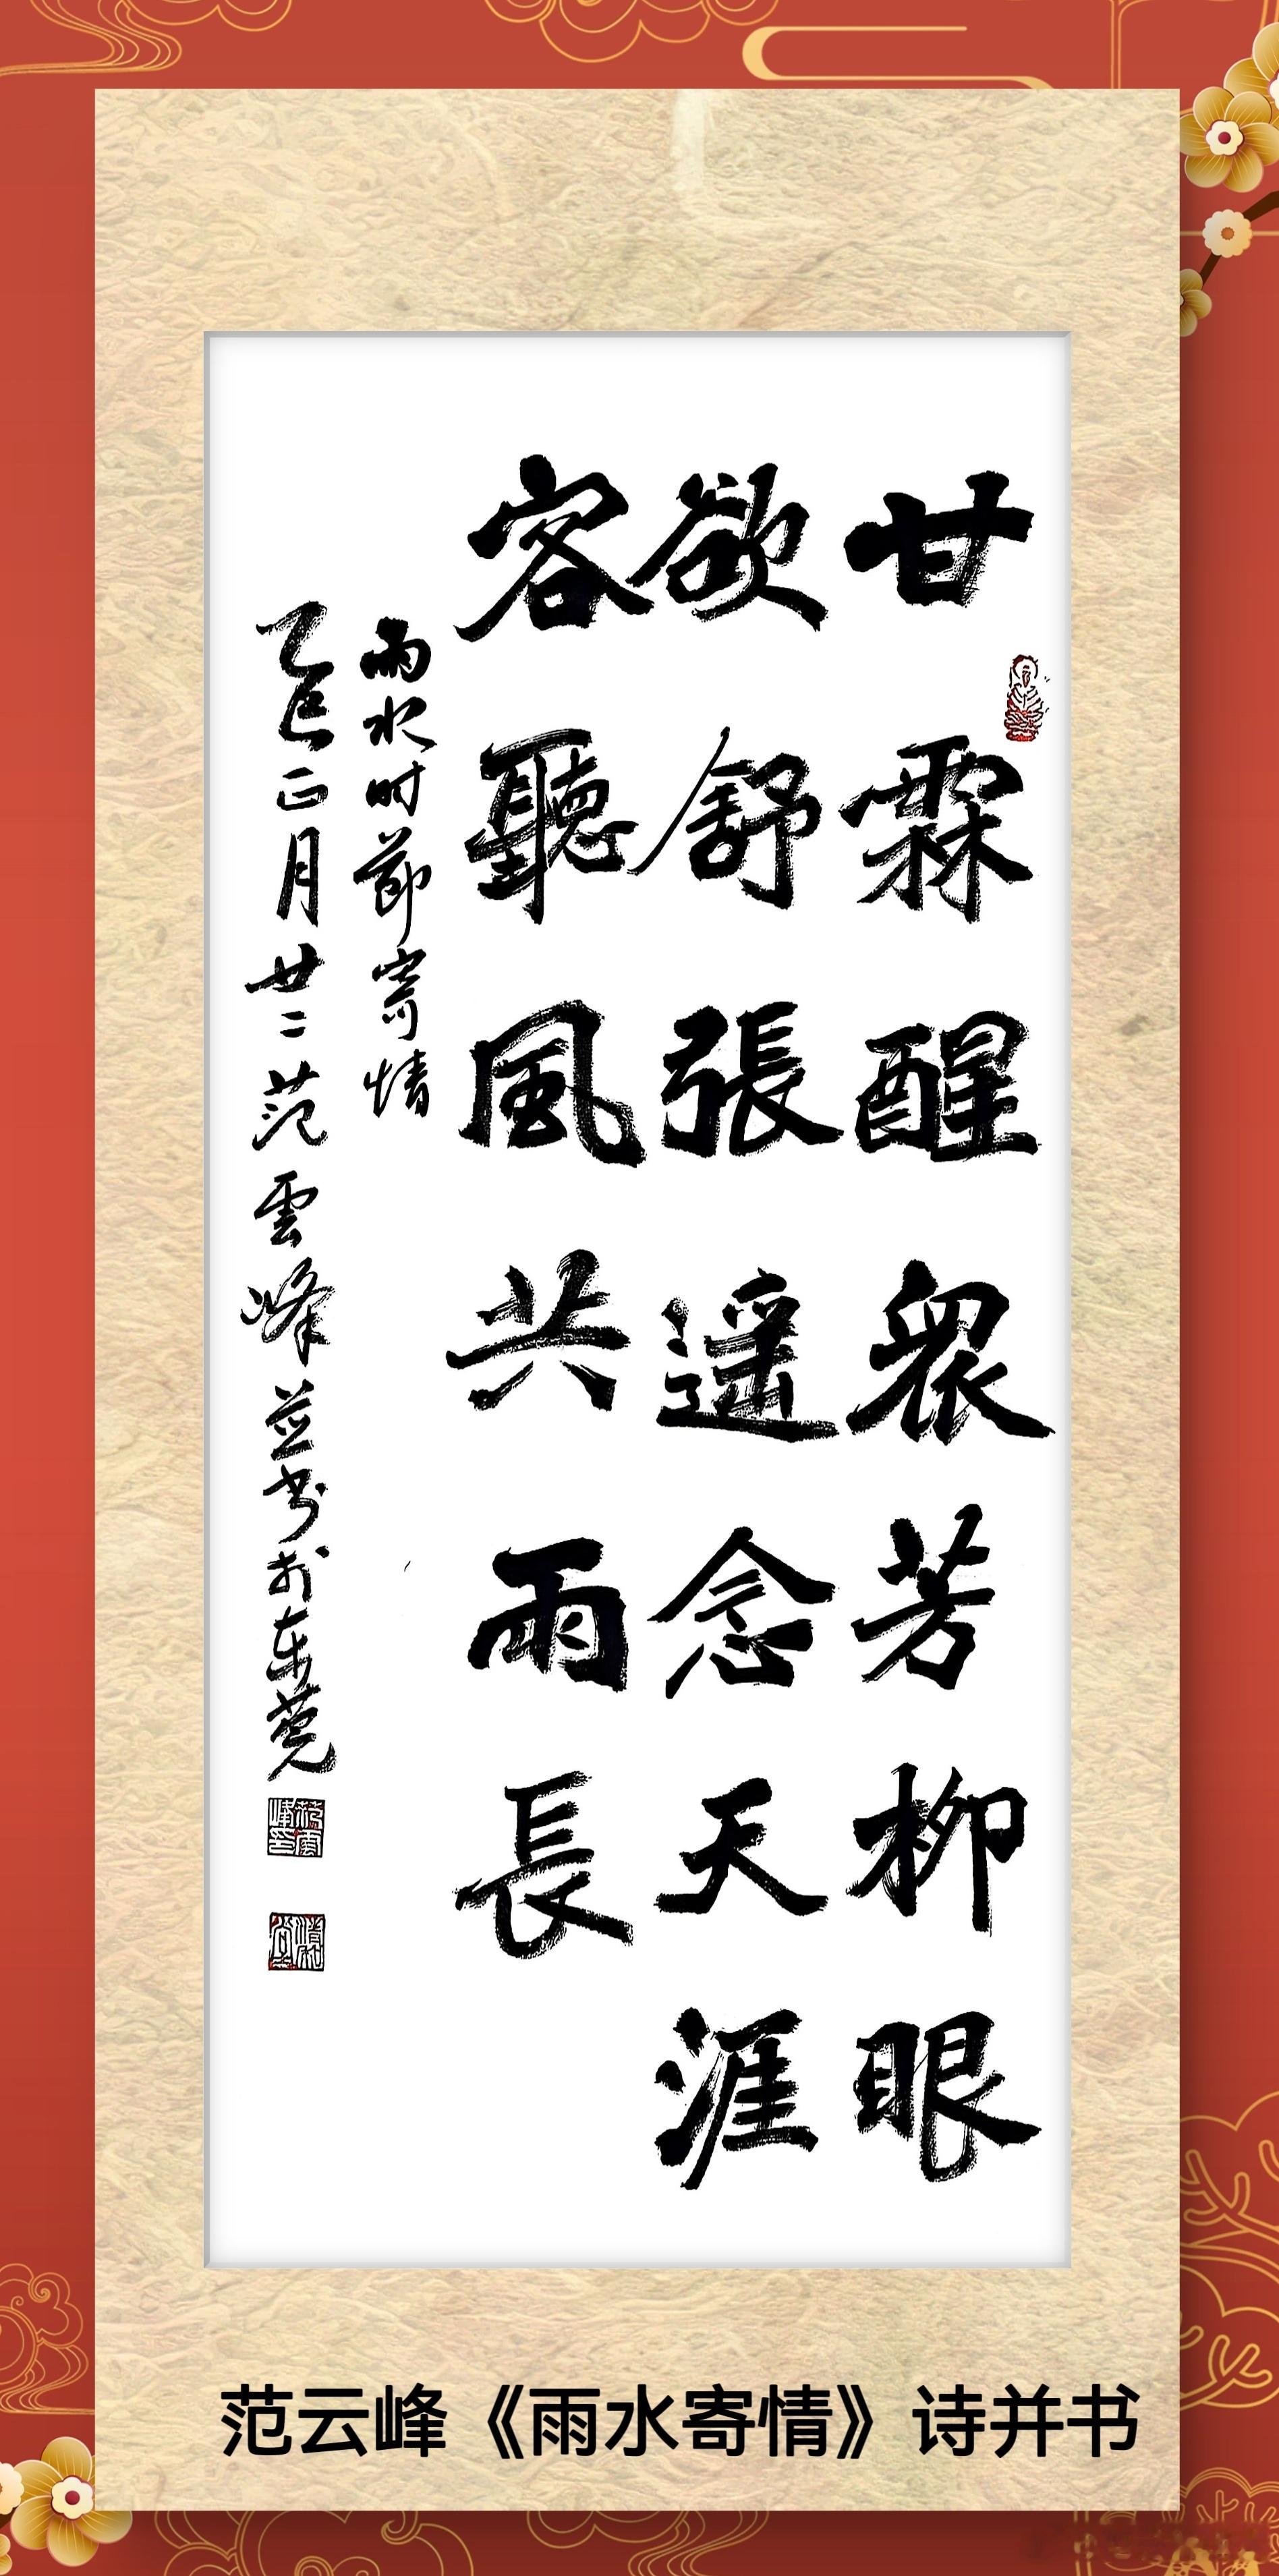 甘霖醒眾芳柳眼
欲舒張遥念天涯
客聽風共雨長
雨水时節寄情
乙巳正月廿二范雲峰並书於东莞
范雲峰印
范云峰《雨水寄情》诗并书